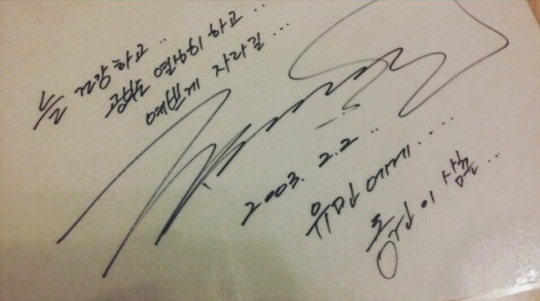 늘 건강하고..
공부도 열심히 하고..
예쁘게 자라길...
2003. 2. 2..
유민에게....
이 삼촌...